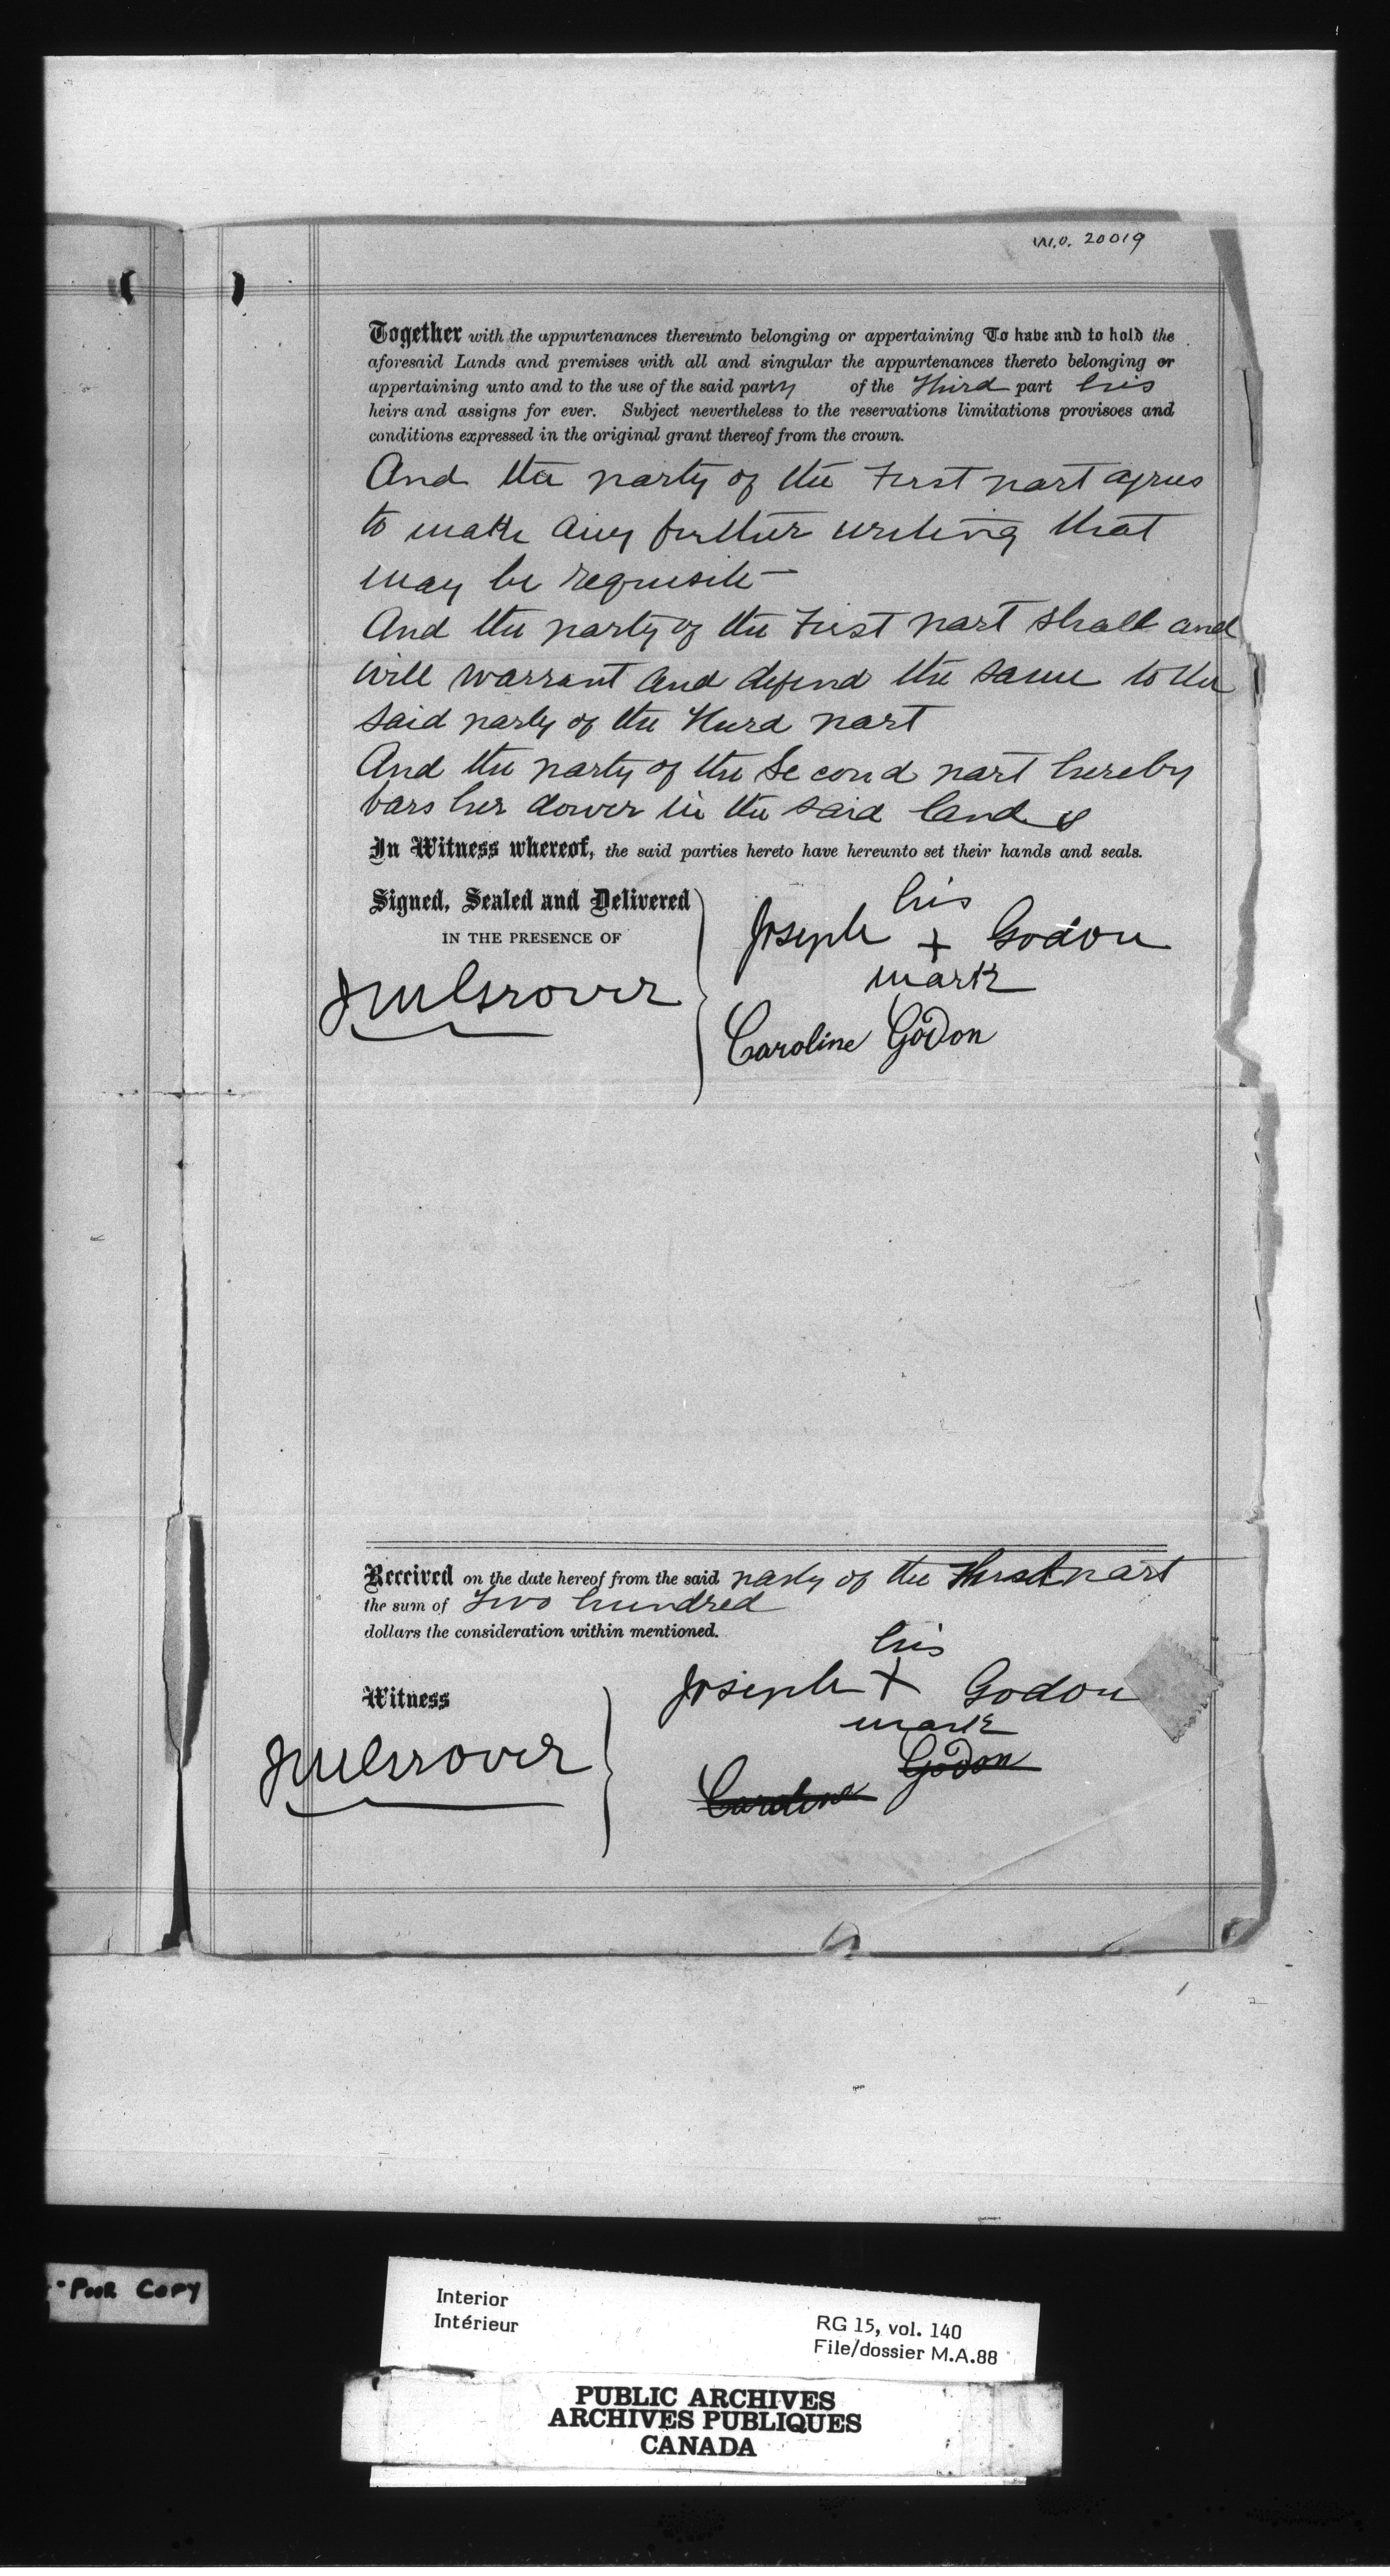 M.O. 20019
Together with the appurtenances thereunto belonging or appertaining To have and to hold the
aforesaid Lands and premises with all and singular the appurtenances thereto belonging or
appertaining unto and to the use of the said party of the Third part his
heirs and assigns for ever. Subject nevertheless to the reservations limitations provisoes and
conditions expressed in the original grant thereof from the crown.
And the party of the First part agrees
to make any further writing that
may be requisite—
And the party of the First part shall and
will warrant and defend the same to the
said party of the Third part
And the party of the Second part hereby
bars her dower in the said lands
In Witness whereof, the said parties hereto have hereunto set their hands and seals.
Signed, Sealed and Delivered
IN THE PRESENCE OF
JMGrover
his
Joseph + Godon
mark
Caroline Godon
Received on the date hereof from the said party of the Third part
the sum of Two hundred
dollars the consideration within mentioned.
Witness
JMGrover
his
Joseph X Godon
mark
Caroline Godon
Poor Copy
Interior
Intérieur
RG 15, vol. 140
File/dossier M.A.88
PUBLIC ARCHIVES
ARCHIVES PUBLIQUES
CANADA